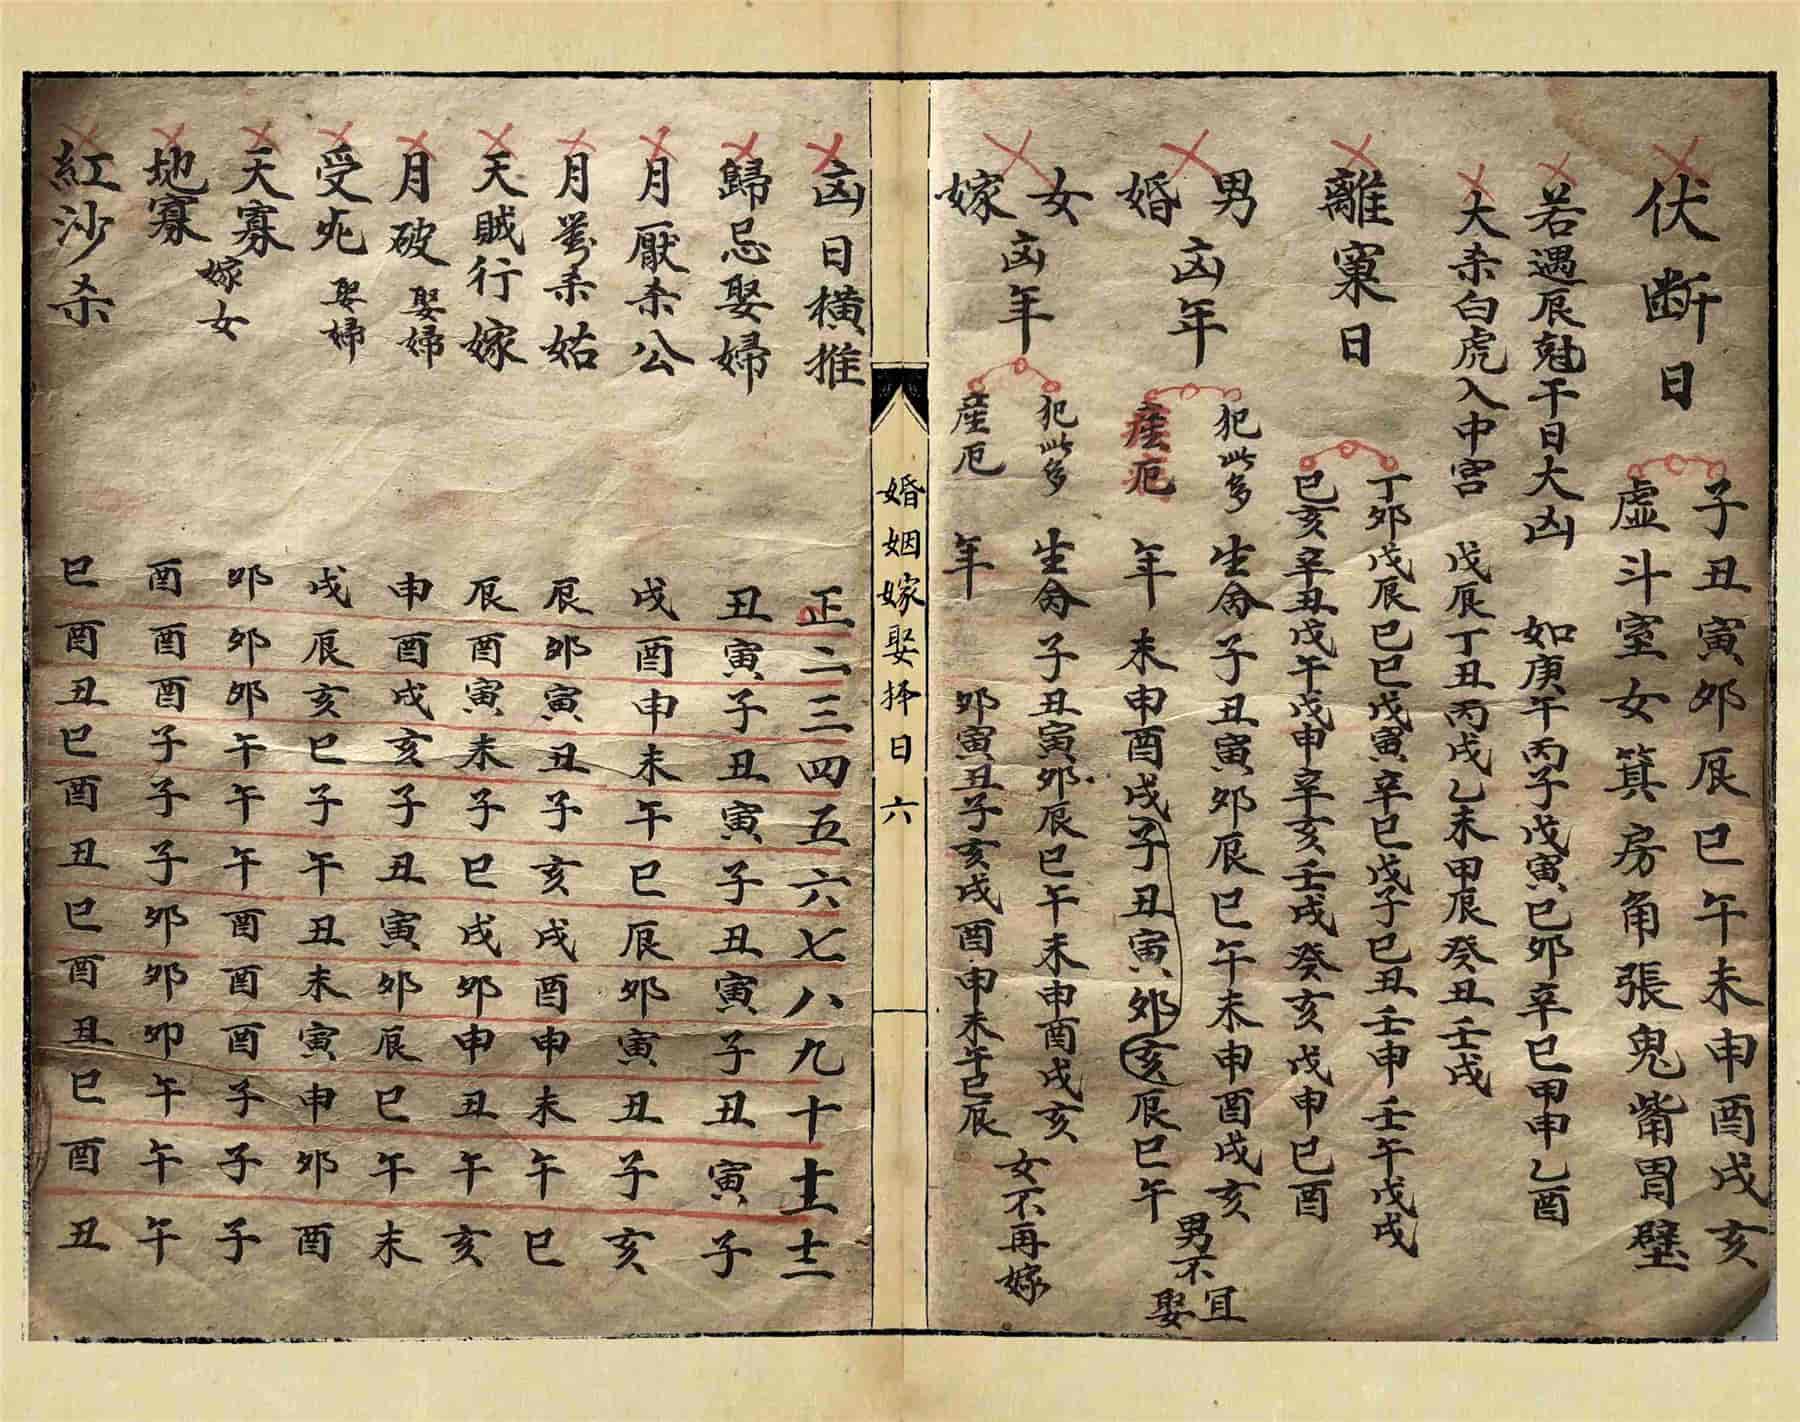 伏断日
子丑寅卯辰巳午未申酉戌亥
虛斗室女箕房角張鬼觜胃壁
若遇辰尅干日大凶 如庚午丙子戊寅巳卯辛巳甲申乙酉
大杀白虎入中宮 戊辰丁丑丙戌乙未甲辰癸丑壬戌
離窠日
丁卯戊辰巳巳戊寅辛巳戊子巳丑壬申壬午戊戌
巳亥辛丑戊午戊申辛亥壬戌癸亥戊申巳酉
男婚凶年
犯此多
産厄
生命子丑寅卯辰巳午未申酉戌亥
年未申酉戌子丑寅卯亥辰巳午
男不宜娶
女嫁凶年
犯此多
産厄
生命子丑寅卯辰巳午未申酉戌亥
年卯寅丑子亥戌酉申未午巳辰
女不再嫁
婚姻嫁娶择日六
凶日橫推 正二三四五六七八九十十一十二
歸忌娶婦 丑寅子丑寅子丑寅子丑寅子
月厭杀公 戌酉申未午巳辰卯寅丑子亥
月對杀姑 辰卯寅丑子亥戌酉申未午巳
天賊行嫁 辰酉寅未子巳戌卯申丑午亥
月破娶婦 申酉戌亥子丑寅卯辰巳午未
受死娶婦 戌辰亥巳子午丑未寅申卯酉
天寡 卯卯卯午午午酉酉酉子子子
嫁女
地寡 酉酉酉子子子卯卯卯午午午
紅沙杀 巳酉丑巳酉丑巳酉丑巳酉丑